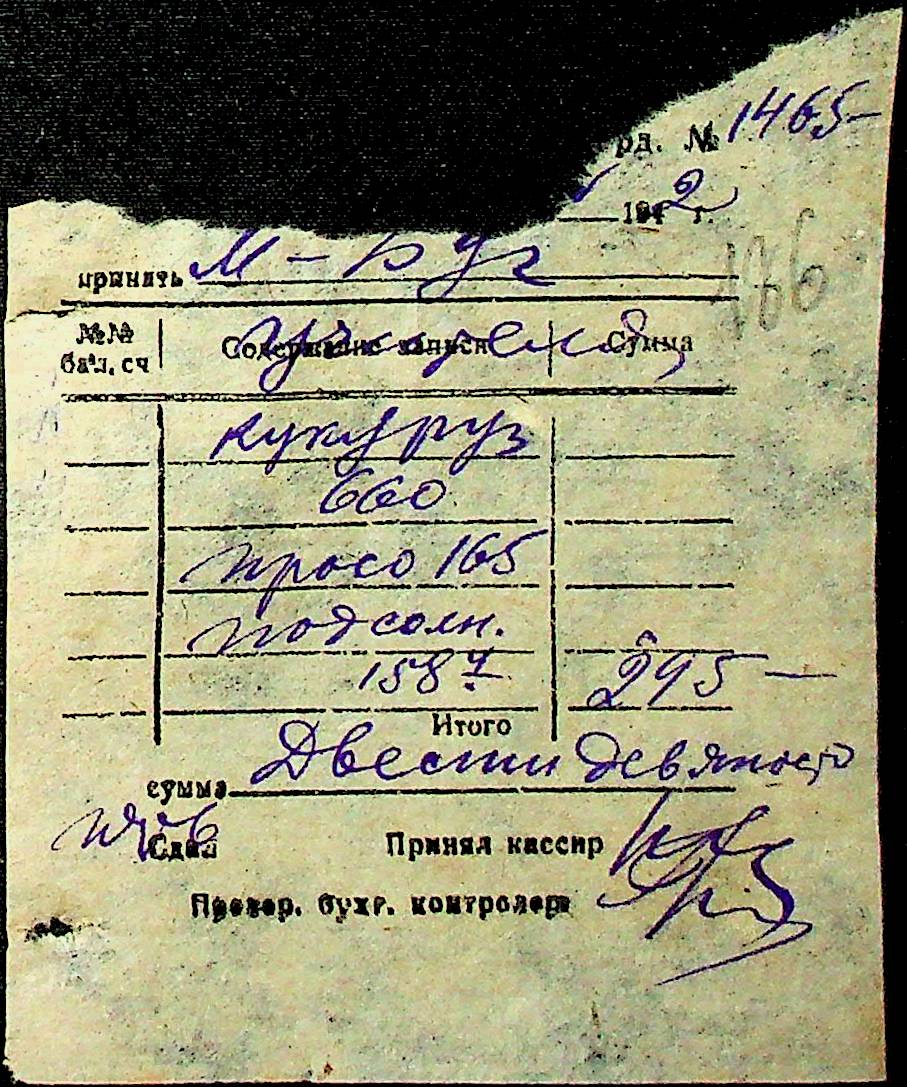 рд. № 1465-
1942 г.
принять М-Буг
№№ бал. сч Содержание записи Сумма
кукуруз
660
просо 165
подсолн.
1587 295 —
Итого
сумма Двести девяносто
пять
Сдал Принял кассир
Провер. бухг. контролер
176